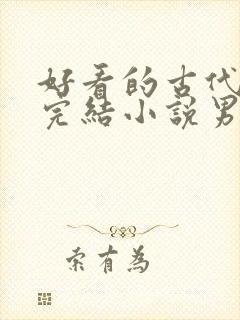 好看的古代
完結小說男
索有為